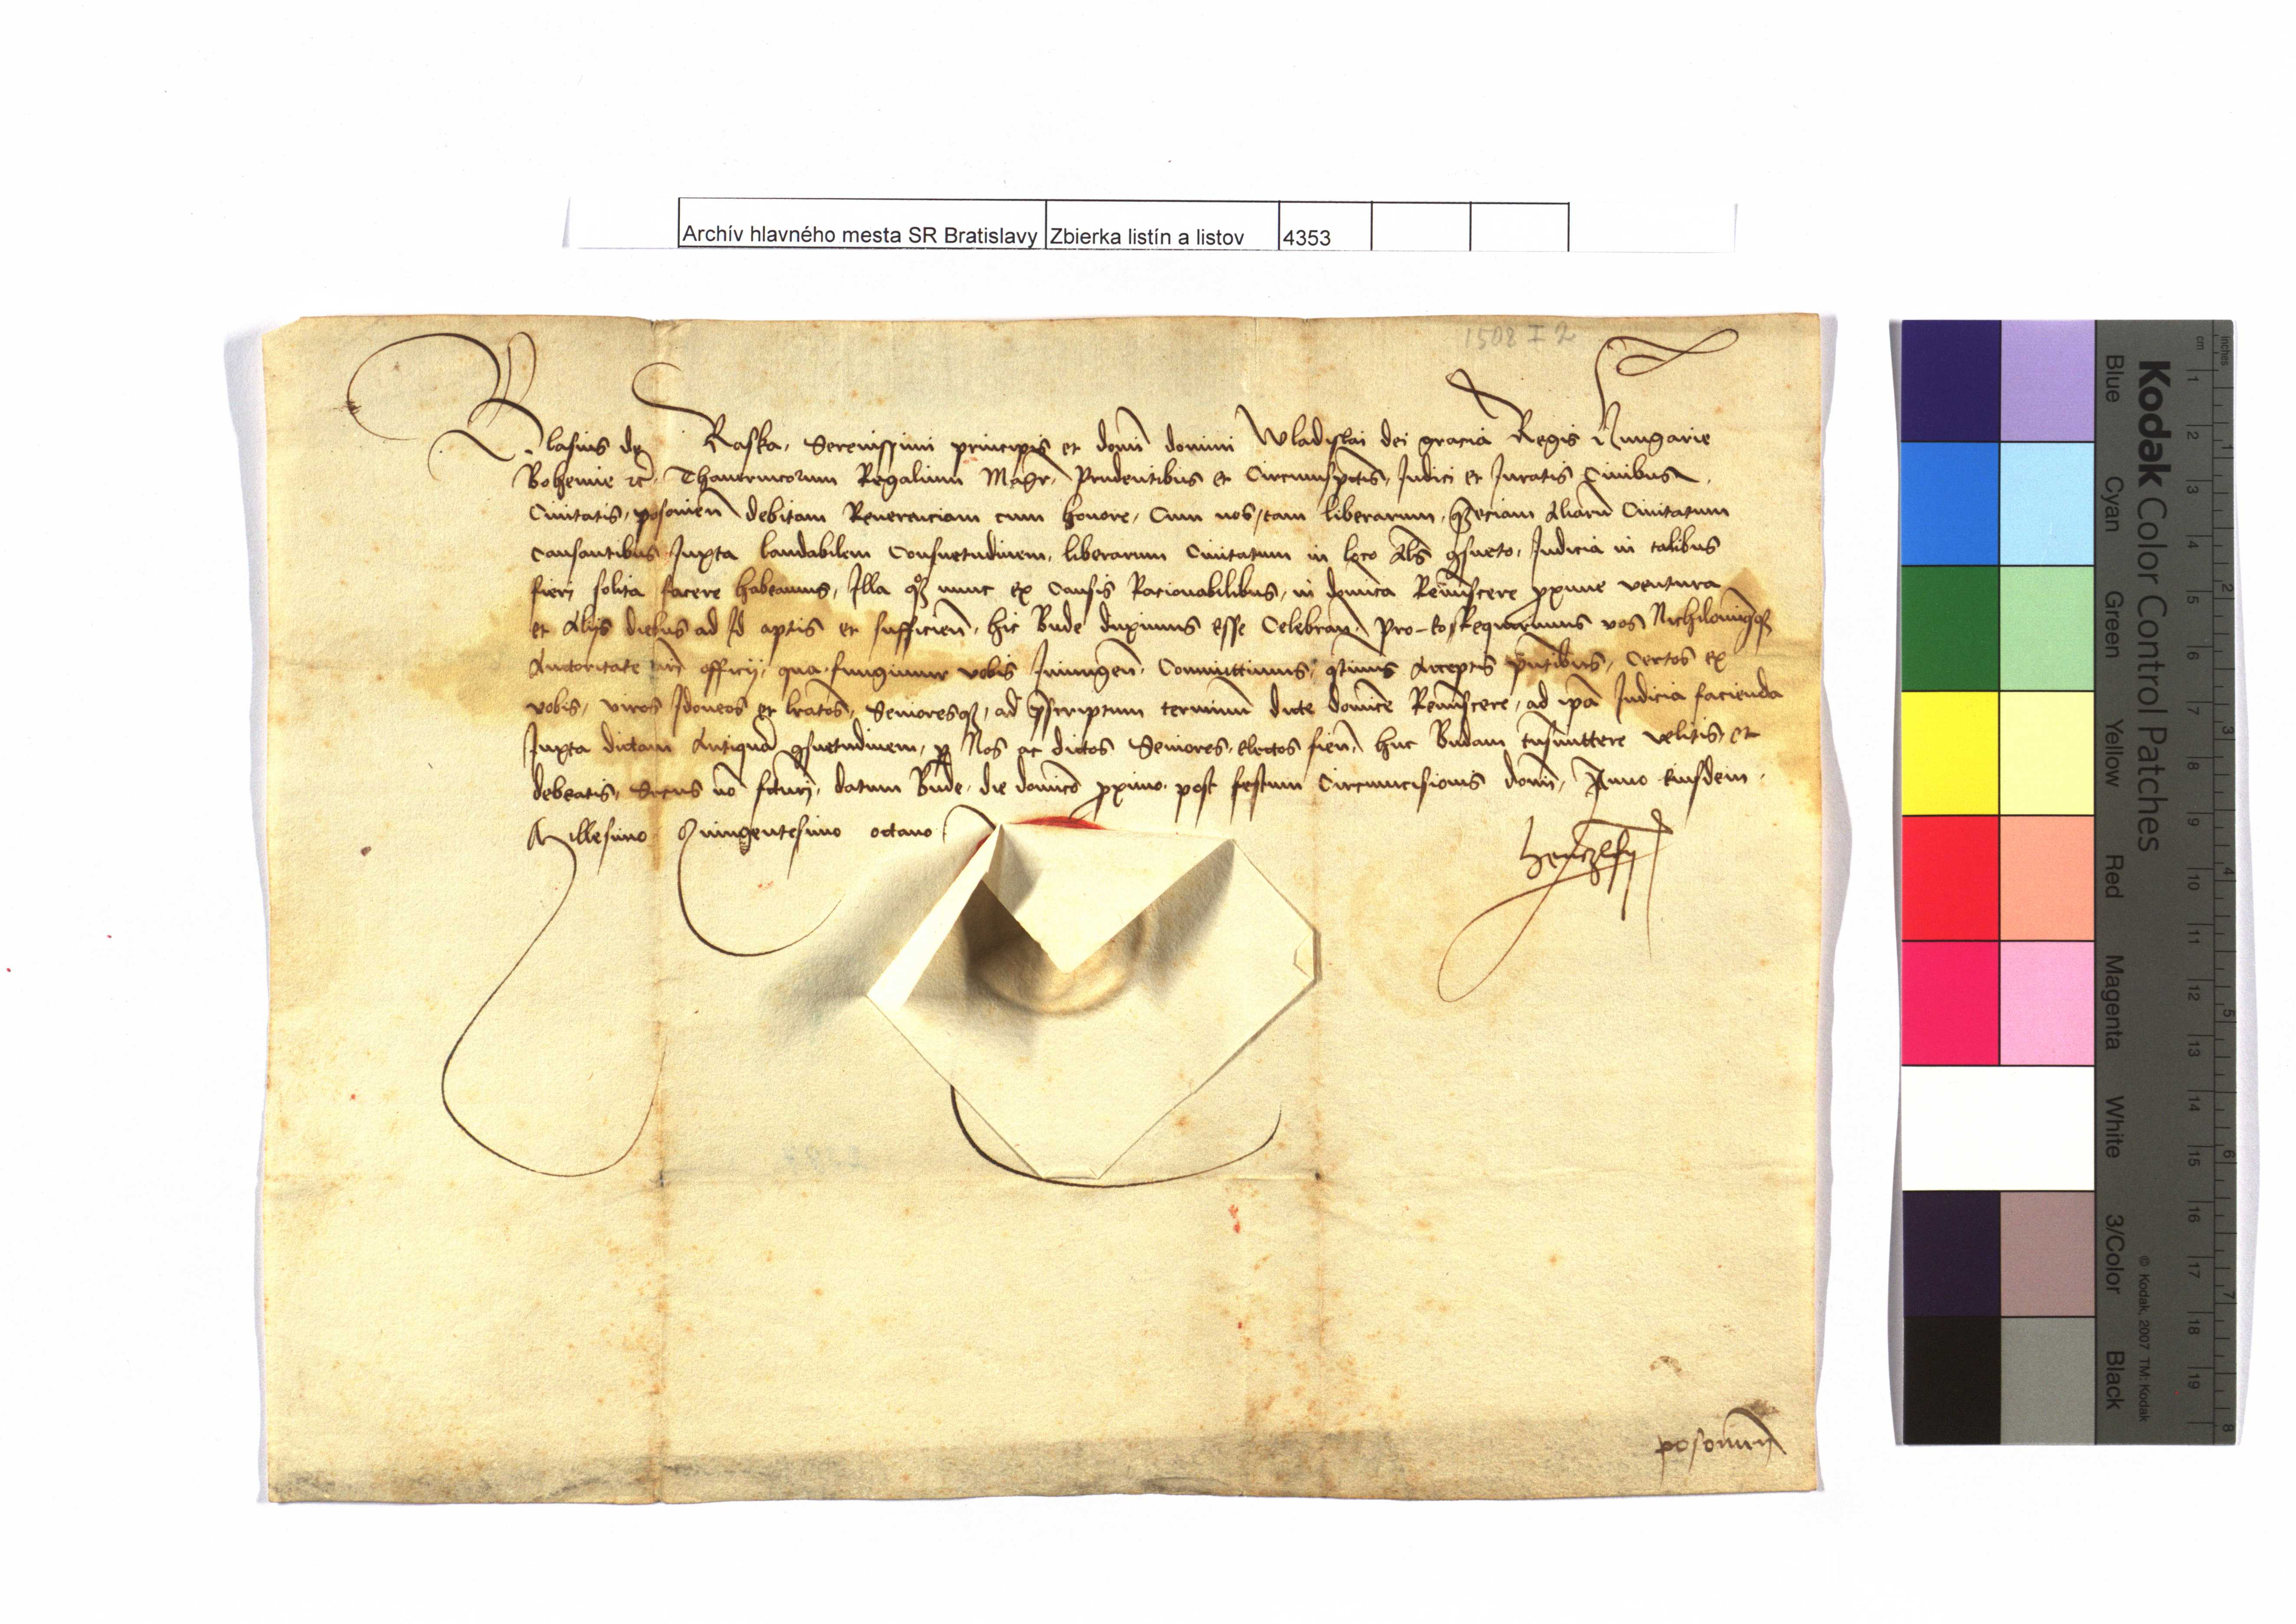 Archív hlavného mesta SR Bratislavy Zbierka listín a listov 4353
1508 I 2
Blasius de Raska, Serenissimi principis et domī domini Wladislai dei gracia Regis Hungarie
Bohemie etc̄, Thavernicorum Regalium Magr, Prudentibus et Circumspectis, Judici et Juratis Civibus
Civitatis, posonien̄ debitam Reverenciam cum honore, Cum nos, tam liberarum, qȝ eciam Aliarū Civitatum
Causantibus Juxta laudabilem Consuetudinem, liberarum Civitatum in loco Als̄ gsueto, Judicia in talibus
fieri solita facere habeamus, Illa qȝ nunc ex Causis Racionabilibus, in domīca Remīscere pxime ventura
et Alijs diebus ad Id aptis et sufficien̄, hic Bude duximus esse Celebran̄, Pro eo Requirimus vos Nichilominqȝ
Auctoritate nr̄i officij, qua fungimur vobis Iniungen̄, Committimus, qtinus Acceptis pn̄tibus, Certos ex
vobis, viros Idoneos et lr̄atos, Senioresqȝ, ad pscriptum terminū dicte domīce Remīscere, ad ip̄a Judicia facienda
Juxta dictam Antiquā gsuetudinem, p Nos ac dictos Seniores, electos fien̄, huc Budam trnsmittere velitis, et
debeatis, Secus nō fcturj, datum Bude, die domīco pximo post festum Circumcisionis domī, Anno eiusdem
Millesimo Quingentesimo octavo
posonien̄
Kodak Color Control Patches
Blue Cyan Green Yellow Red Magenta White 3/Color Black
© Kodak, 2007 TM: Kodak
cm 1 2 3 4 5 6 7 8 9 10 11 12 13 14 15 16 17 18 19
inches 1 2 3 4 5 6 7 8